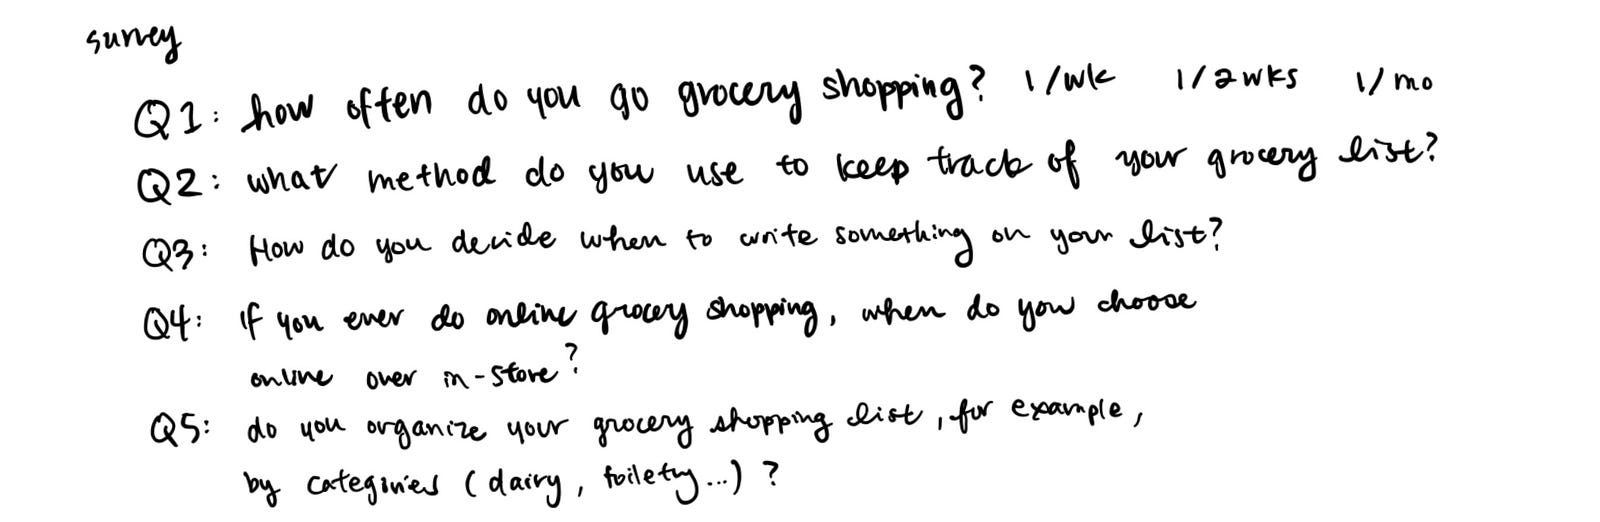 survey
Q1: how often do you go grocery shopping? 1/wk 1/2wks 1/mo
Q2: what method do you use to keep track of your grocery list?
Q3: How do you decide when to write something on your list?
Q4: If you ever do online grocery shopping, when do you choose
online over in-store?
Q5: do you organize your grocery shopping list, for example,
by categories (dairy, toiletry...)?